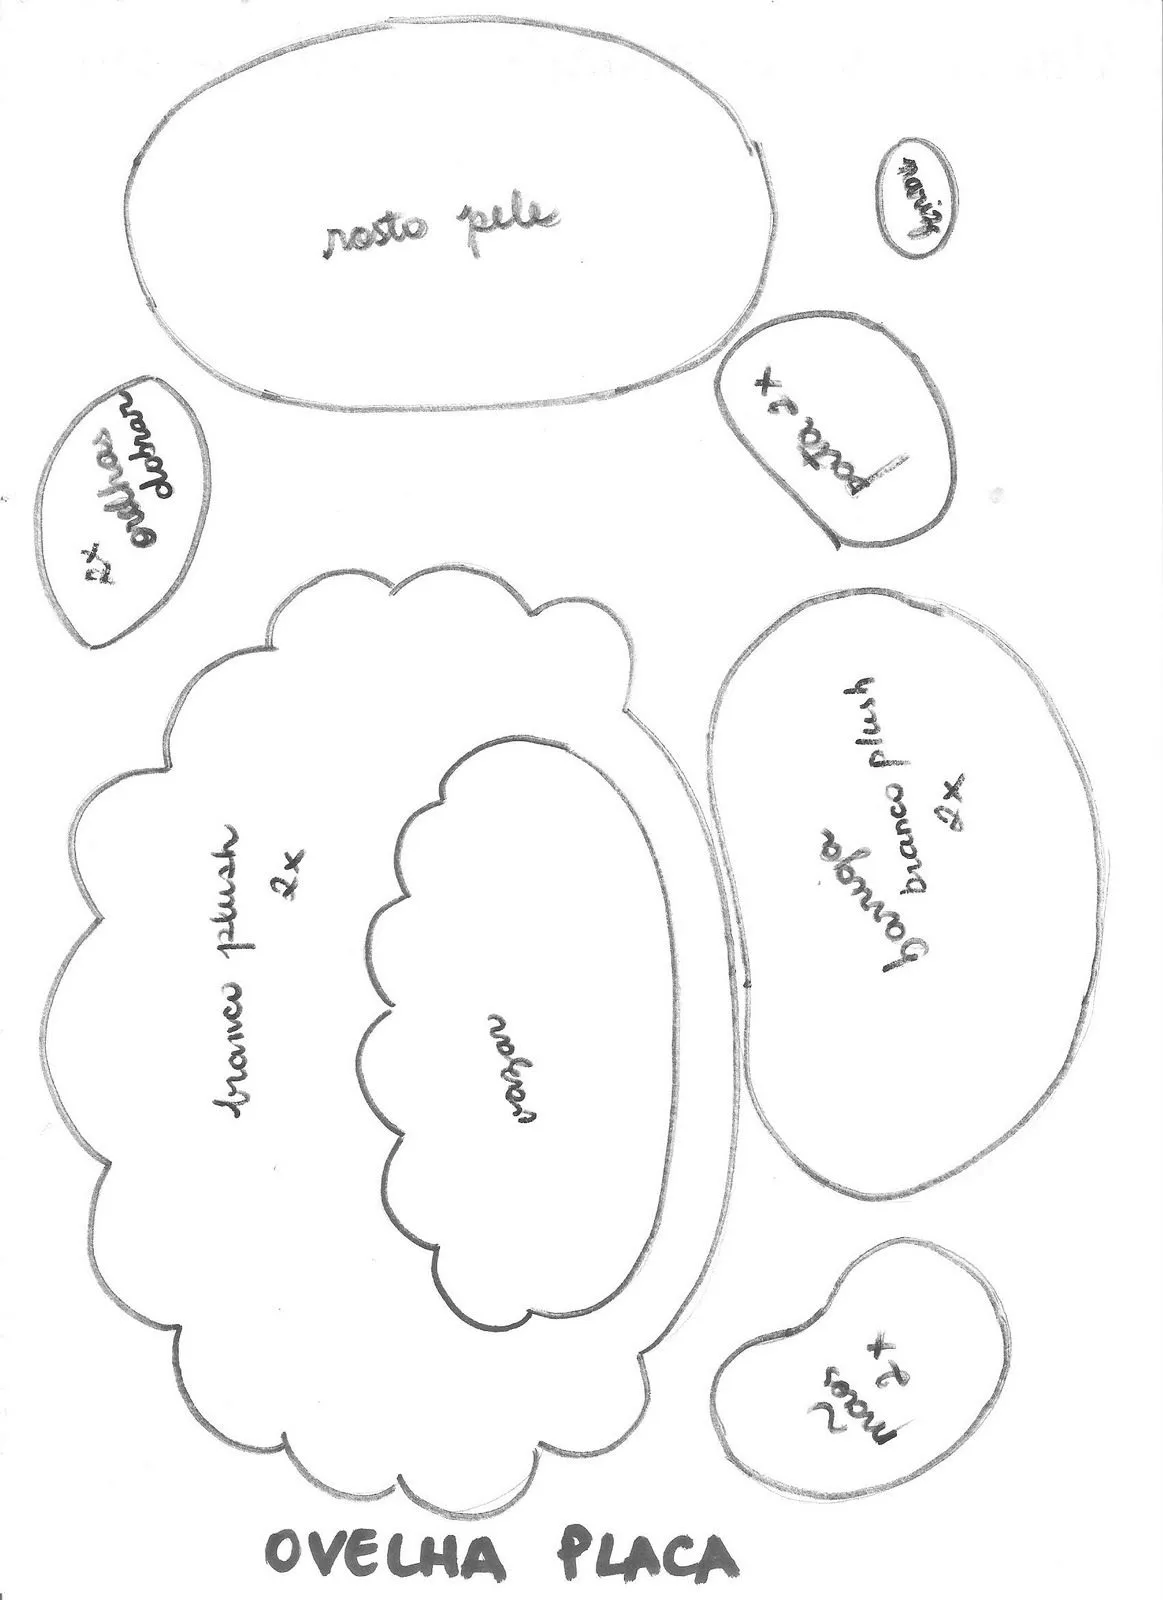 rosto pele
nariz
pata 2x
dobrar
orelhas
2x
branco plush
2x
vazar
barriga
branco plush
2x
mãos
2x
OVELHA PLACA